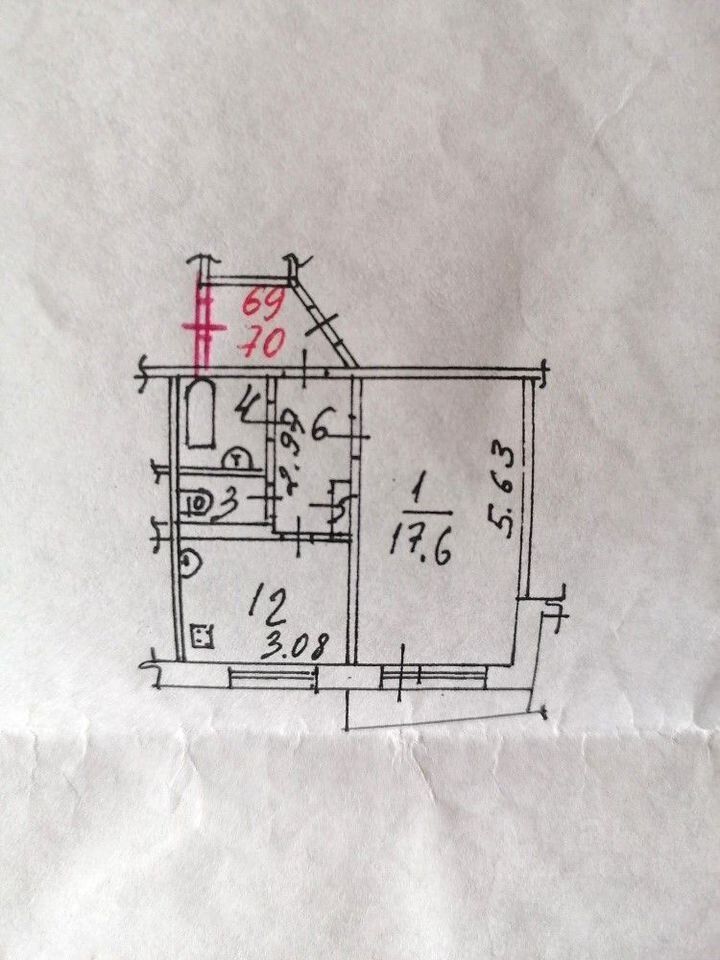 69
70
4
2.97
6
3
5
1
17.6
5.63
12
3.08